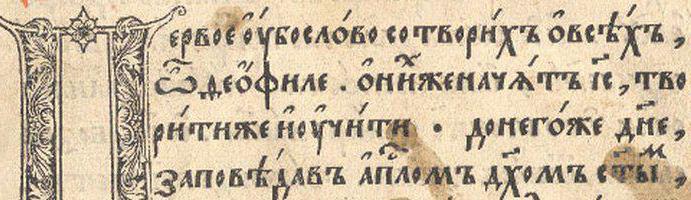 Первое ѹ҆бо сло́во сотвори́хъ ѻ҆ всѣ́хъ ,
ѽ ѳеѻ́филе . ѻ҆ ни́хже начѧ́тъ і҆с҃ , тво
ри́ти же и҆ ѹ҆чи́ти · до него́же дн҃е ,
заповѣ́давъ а҆пⷭ҇ломъ дх҃омъ ст҃ы́мъ ,